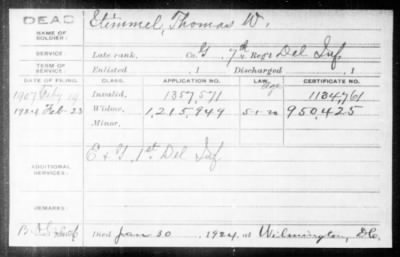 DEAD
Stimmel, Thomas W.
NAME OF SOLDIER:
SERVICE:
Late rank, Co. G, 7th Reg't Del Inf
TERM OF SERVICE:
Enlisted , 1 Discharged , 1
DATE OF FILING. CLASS. APPLICATION NO. LAW. CERTIFICATE NO.
1907 Feby Invalid, 1357,571 Age 1134761
1924 Feb-23 Widow, 1,215,949 5-1-20 950,425
Minor,
ADDITIONAL SERVICES:
E & G, 1st Del Inf
REMARKS:
Died Jan 30, 1924, at Wilmington, Del.